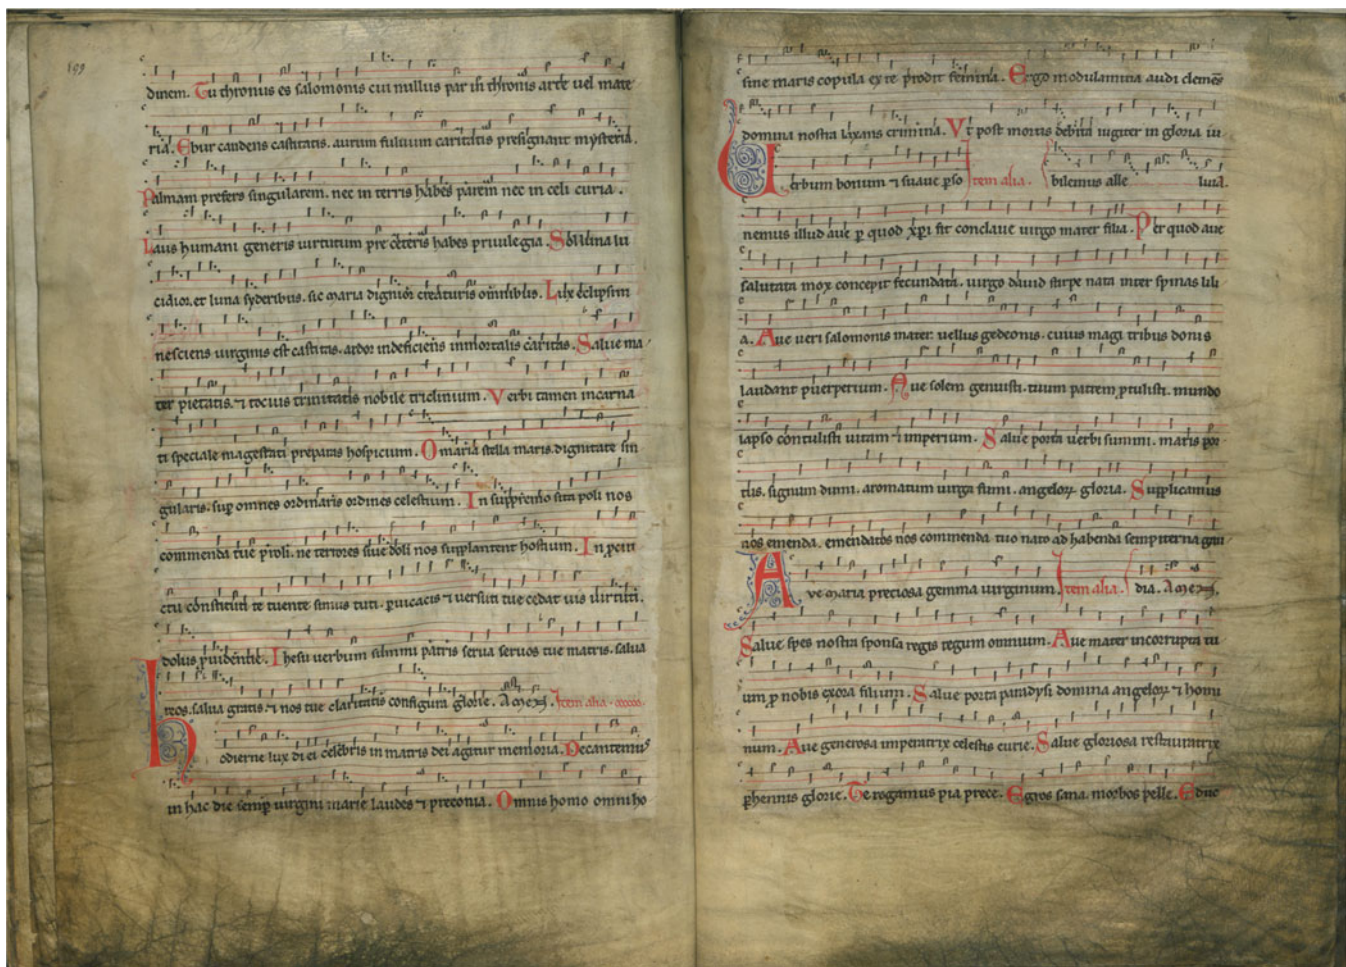 199
dinem. Tu thronus es salomonis cui nullus par in thronis arte vel mate
ria. Ebur candens castitatis. aurum fuluum caritatis presignant mysteria.
Palmam prefers singularem. nec in terris habes parem nec in celi curia.
Laus humani generis uirtutum pre ceteris habes priuilegia. Sol luna lu
cidior. et luna syderibus. sic maria dignior creaturis omnibus. Lux eclipsim
nesciens uirginis est castitas. ardor indeficiens inmortalis caritas. Salue ma
ter pietatis. ⁊ tocius trinitatis nobile triclinium. Verbi tamen incarna
ti speciale magestati preparas hospicium. O maria stella maris. dignitate sin
gularis. sup omnes ordinaris ordines celestium. In supremo sita poli nos
commenda tue proli. ne terrores siue doli nos supplantent hostium. In procin
ctu constituti te tuente simus tuti. puicacis ⁊ uersuti tue cedat uis uirtuti.
dolus prouidentie. Ihesu uerbum summi patris serua seruos tue matris. salua
reos. salua gratis. ⁊ nos tue claritatis configura glorie. Amen. Item alia.
hodierne lux diei celebris in matris dei agitur memoria. Decantemus
in hac die semp uirgini marie laudes ⁊ preconia. Omnis homo omni ho
sine maris copula ex te prodit femina. Ergo modulamina audi clemens
domina nostra laxans crimina. Vt post mortis debita iugiter in gloria iu
Verbum bonum ⁊ suaue pso Item alia. bilemus alle luia.
nemus illud aue p quod xpi fit conclaue uirgo mater filia. Per quod aue
salutata mox concepit fecundata. uirgo dauid stirpe nata inter spinas lili
a. Aue ueri salomonis mater. uellus gedeonis. cuius magi tribus donis
laudant puerperium. Aue solem genuisti. tuum patrem ptulisti. mundo
lapso contulisti uitam ⁊ imperium. Salue porta uerbi summi. maris por
tus. signum dumi. aromatum uirga fumi. angeloꝝ gloria. Supplicamus
nos emenda. emendatos nos commenda tuo nato ad habenda sempiterna gau
Ave maria preciosa gemma uirginum. Item alia. dia. Amen.
Salue spes nostra sponsa regis regum omnium. Aue mater incorrupta tu
um p nobis exora filium. Salue porta paradysi domina angeloꝝ ⁊ homi
num. Aue generosa imperatrix celestis curie. Salue gloriosa restauratrix
phennis glorie. Te rogamus pia prece. Egros sana. morbos pelle. Educ